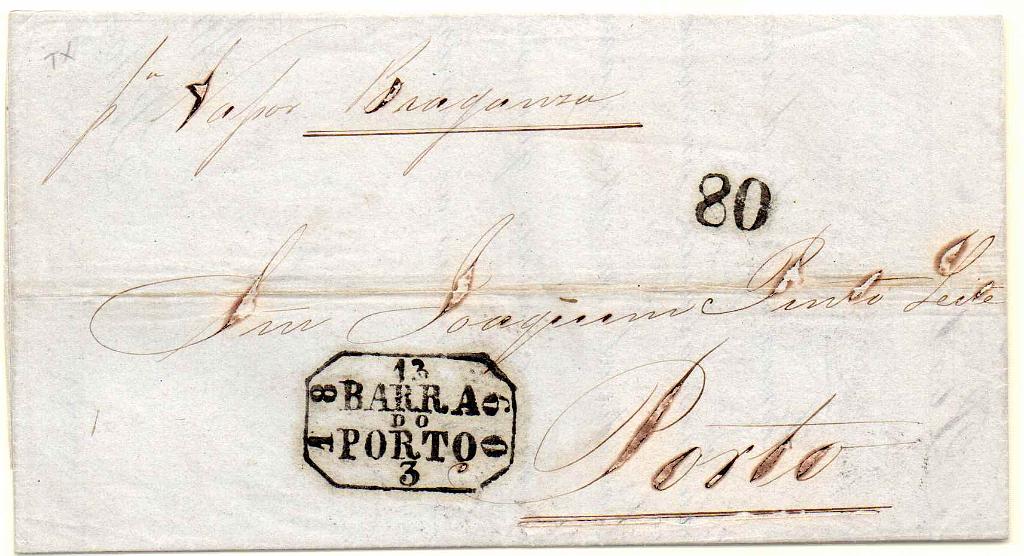 TX
pᵃ Vapor Braganza
80
Snr Joaquim Pinto Leite
13
18 BARRA 60
DO
PORTO
3
Porto